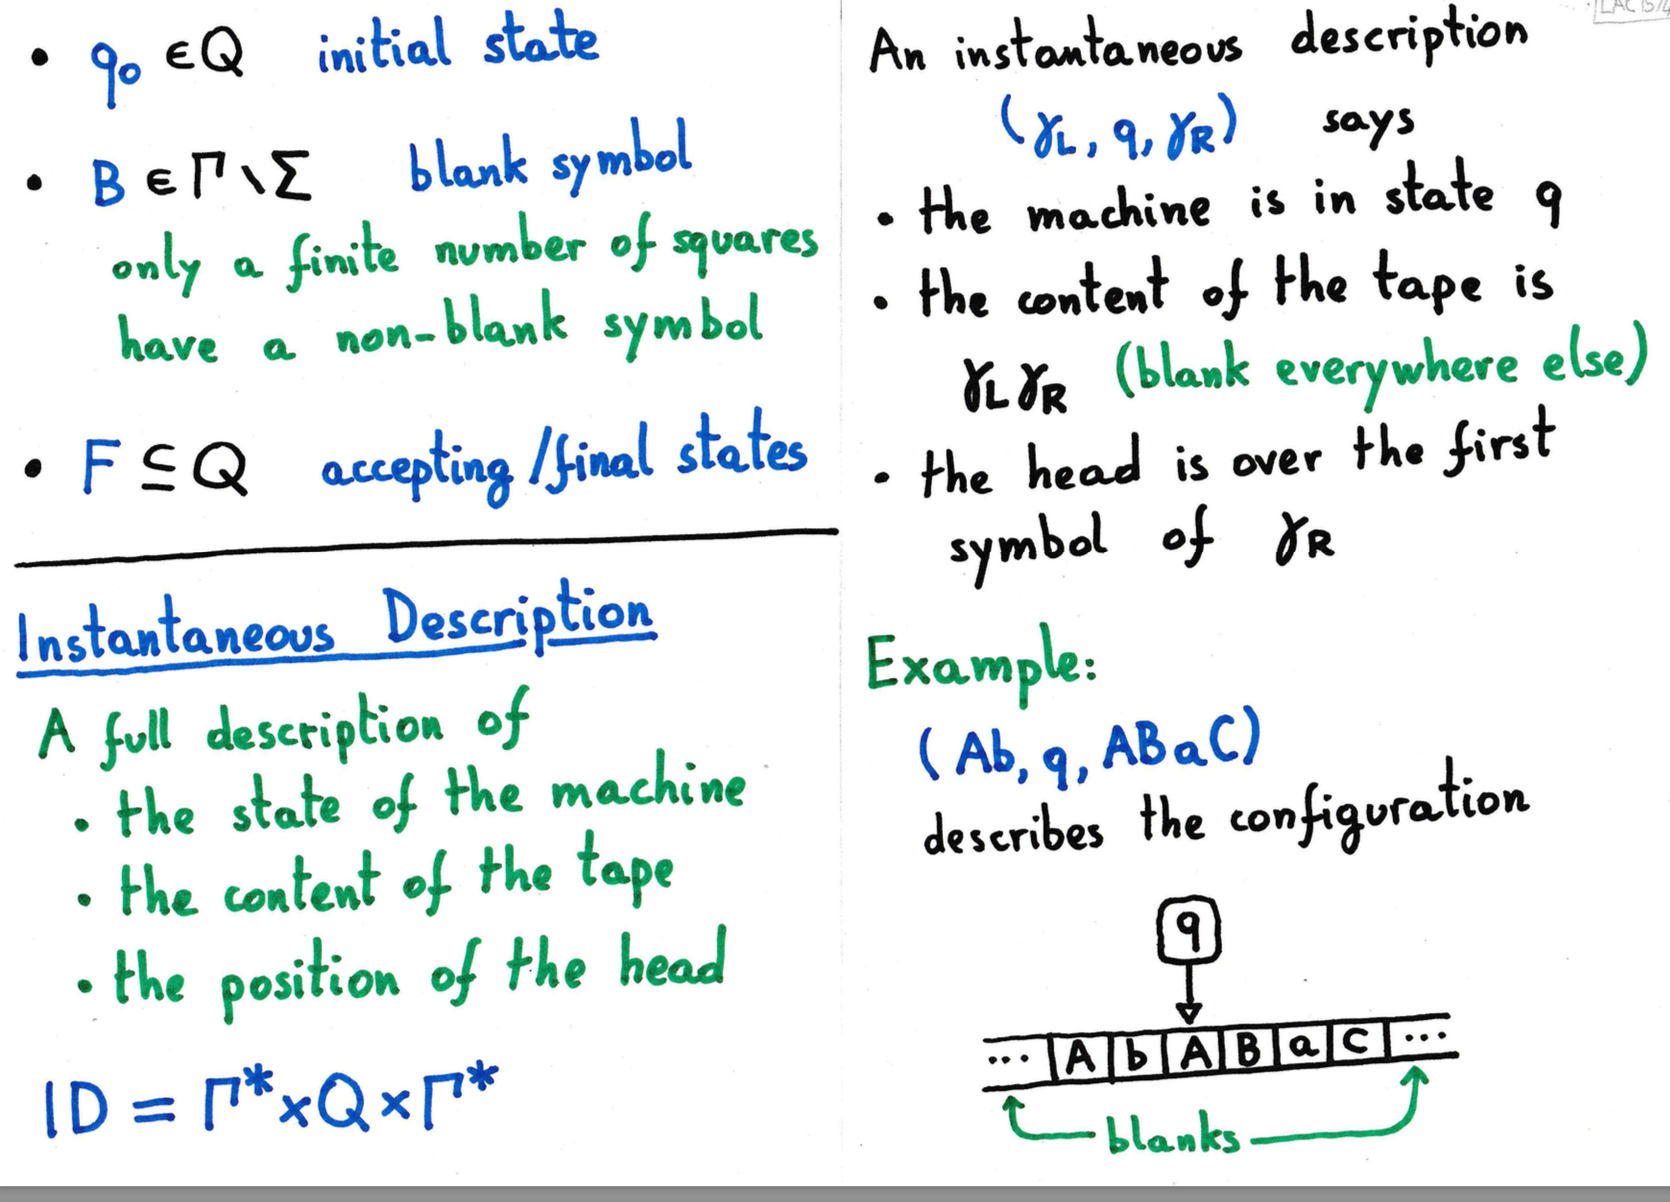 • q₀ ∈ Q initial state
• B ∈ Γ \ Σ blank symbol
only a finite number of squares
have a non-blank symbol
• F ⊆ Q accepting/final states
Instantaneous Description
A full description of
• the state of the machine
• the content of the tape
• the position of the head
ID = Γ* × Q × Γ*
An instantaneous description
(γL, q, γR) says
• the machine is in state q
• the content of the tape is
γLγR (blank everywhere else)
• the head is over the first
symbol of γR
Example:
(Ab, q, ABaC)
describes the configuration
q
... A b A B a C ...
blanks